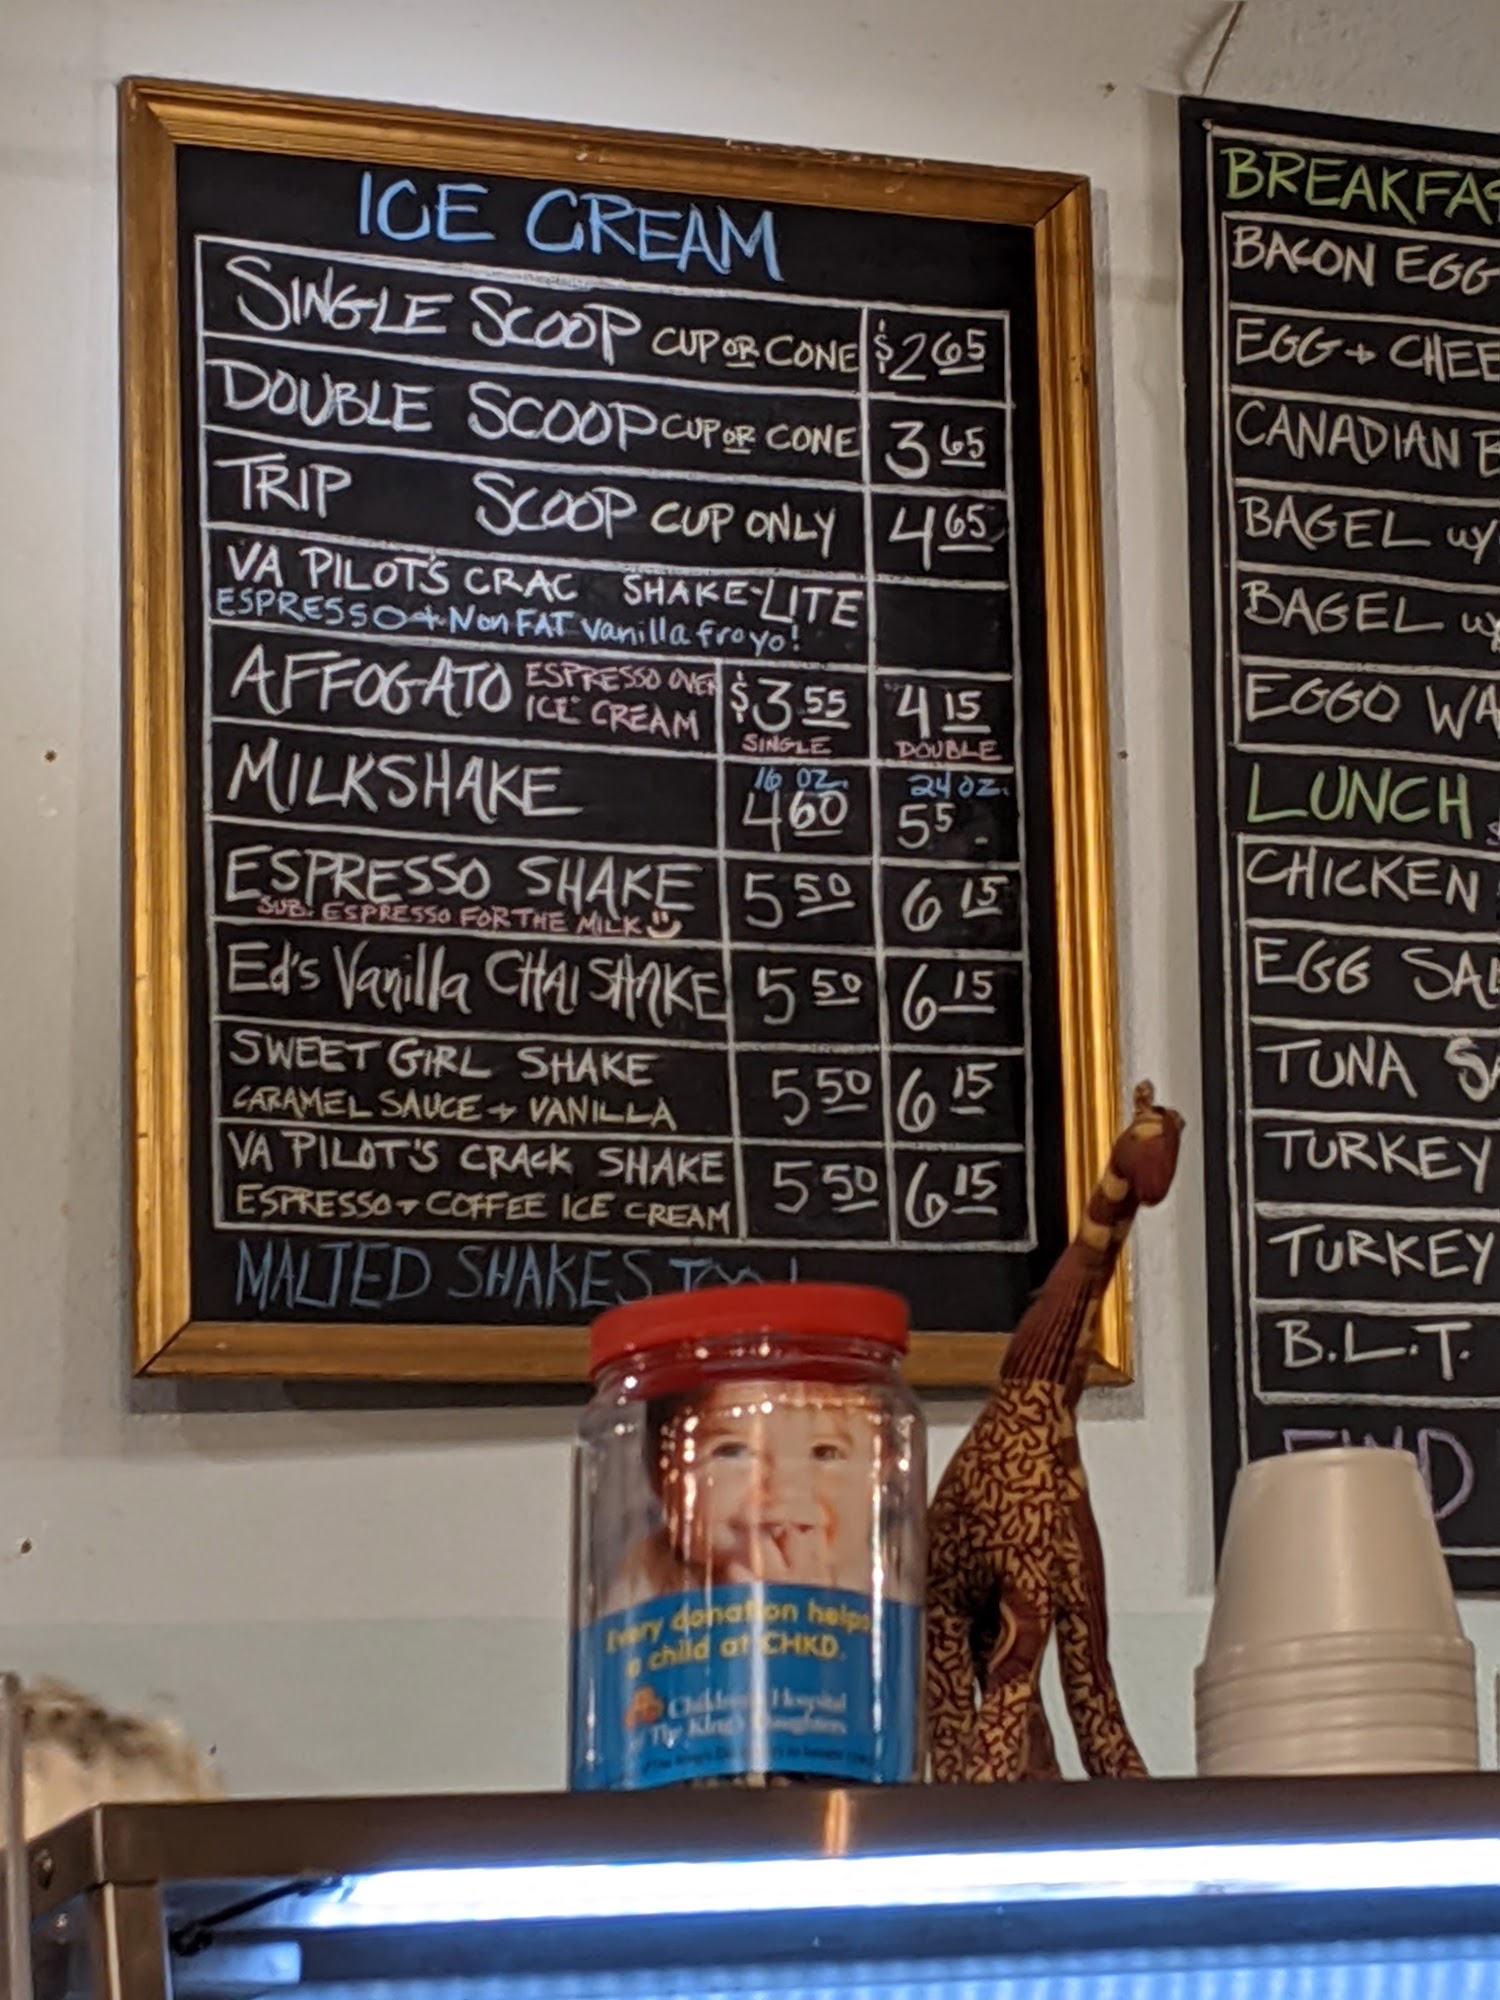 ICE CREAM
SINGLE SCOOP CUP OR CONE $2 65
DOUBLE SCOOP CUP OR CONE 3 65
TRIP SCOOP CUP ONLY 4 65
VA PILOT'S CRAC SHAKE-LITE
ESPRESSO + Non FAT vanilla froyo!
AFFOGATO ESPRESSO OVER ICE CREAM $3 55 SINGLE 4 15 DOUBLE
MILKSHAKE 16 OZ. 4 60 24 OZ. 5 5
ESPRESSO SHAKE 5 50 6 15
SUB. ESPRESSO FOR THE MILK
Ed's Vanilla CHAI SHAKE 5 50 6 15
SWEET GIRL SHAKE 5 50 6 15
CARAMEL SAUCE + VANILLA
VA PILOT'S CRACK SHAKE 5 50 6 15
ESPRESSO + COFFEE ICE CREAM
MALTED SHAKES TOO!
BREAKFAS
BACON EGG
EGG + CHEE
CANADIAN B
BAGEL w/
BAGEL w/
EGGO WA
LUNCH
CHICKEN
EGG SAL
TUNA SA
TURKEY
TURKEY
B.L.T.
Every donation helps
a child at CHKD.
Children's Hospital
of The King's Daughters